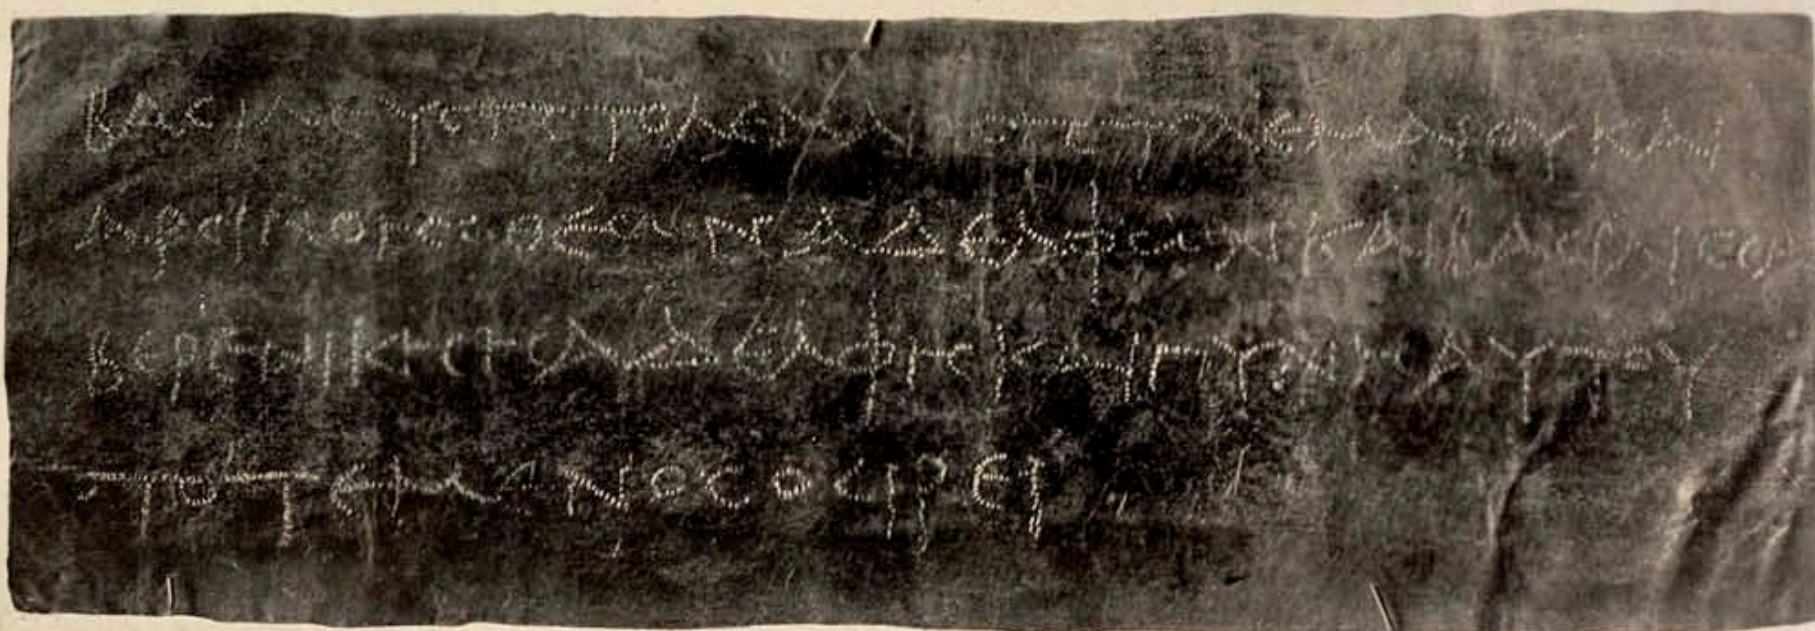 ΒΑCΙΛΕΥC ΠΤΟΛΕΜΑΙΟC ΠΤΟΛΕΜΑΙΟΥ ΚΑΙ
ΑΡCΙΝΟΗC ΘΕΩΝ ΑΔΕΛΦΩΝ ΚΑΙ ΒΑCΙΛΙCCΑ
ΒΕΡΕΝΙΚΗ Η ΑΔΕΛΦΗ ΚΑΙ ΓΥΝΗ ΑΥΤΟΥ
ΤΟ ΤΕΜΕΝΟC ΟCΙΡΕΙ